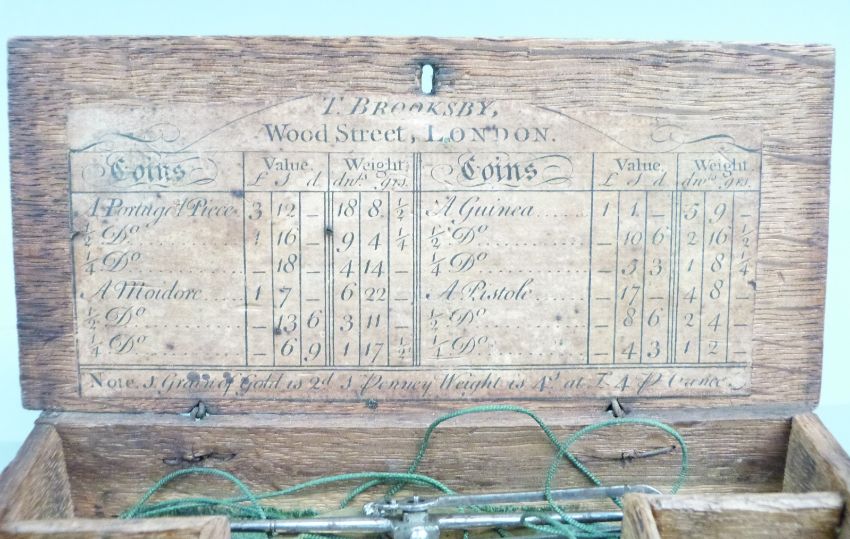 T. BROOKSBY,
Wood Street, LONDON.
Coins Value Weight Coins Value Weight
£ s d dwts grs. £ s d dwts grs.
A Portugal Piece 3 12 – 18 8 ½ A Guinea 1 1 – 5 9 –
½ Do 1 16 – 9 4 ¼ ½ Do – 10 6 2 16 ½
¼ Do – 18 – 4 14 – ¼ Do – 5 3 1 8 ¼
A Moidore 1 7 – 6 22 – A Pistole – 17 – 4 8 –
½ Do – 13 6 3 11 – ½ Do – 8 6 2 4 –
¼ Do – 6 9 1 17 ½ ¼ Do – 4 3 1 2 –
Note, 1 Grain of Gold is 2d 1 Penney Weight is 4s at £ 4 P Ounce